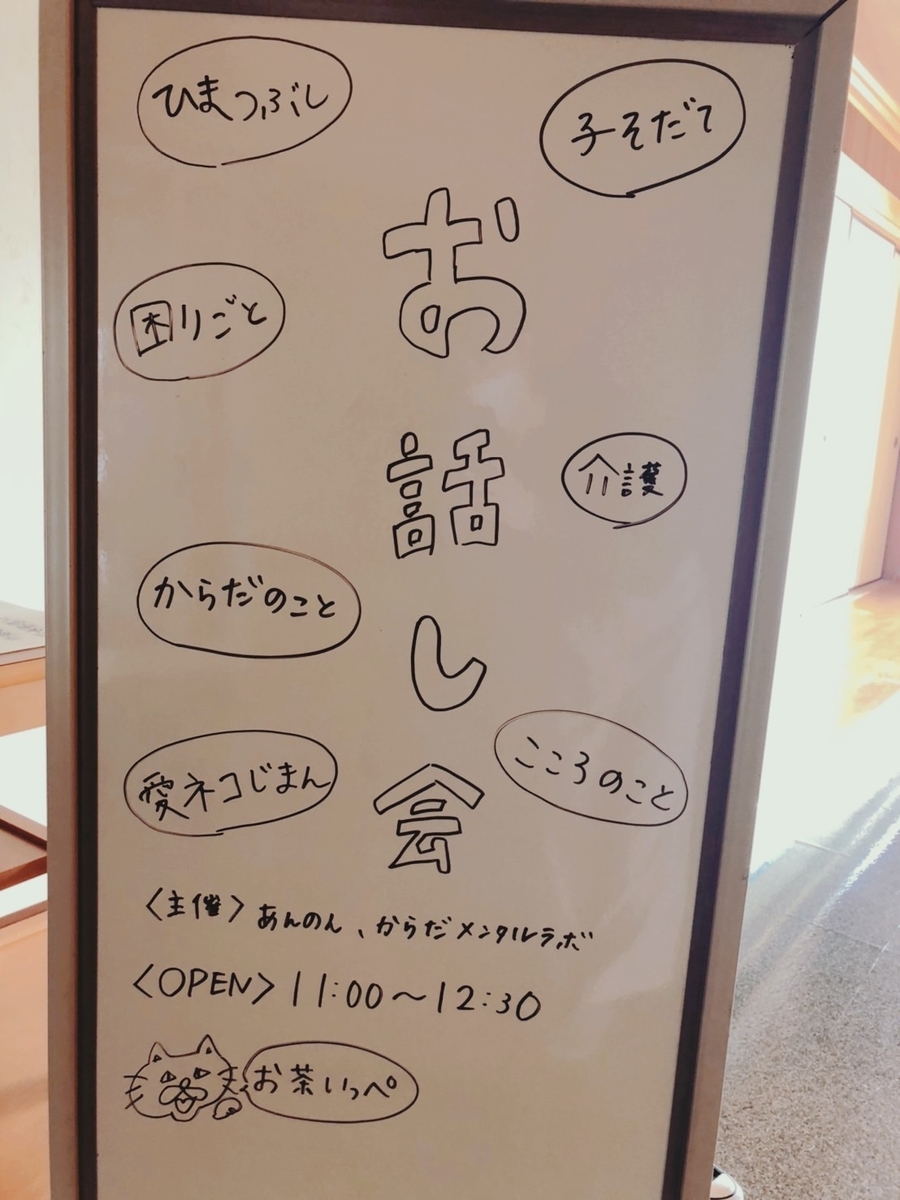 ひまつぶし
子そだて
困りごと
お話し会
介護
からだのこと
こころのこと
愛ネコじまん
〈主催〉あんのん、からだメンタルラボ
〈OPEN〉11:00〜12:30
お茶いっぺ